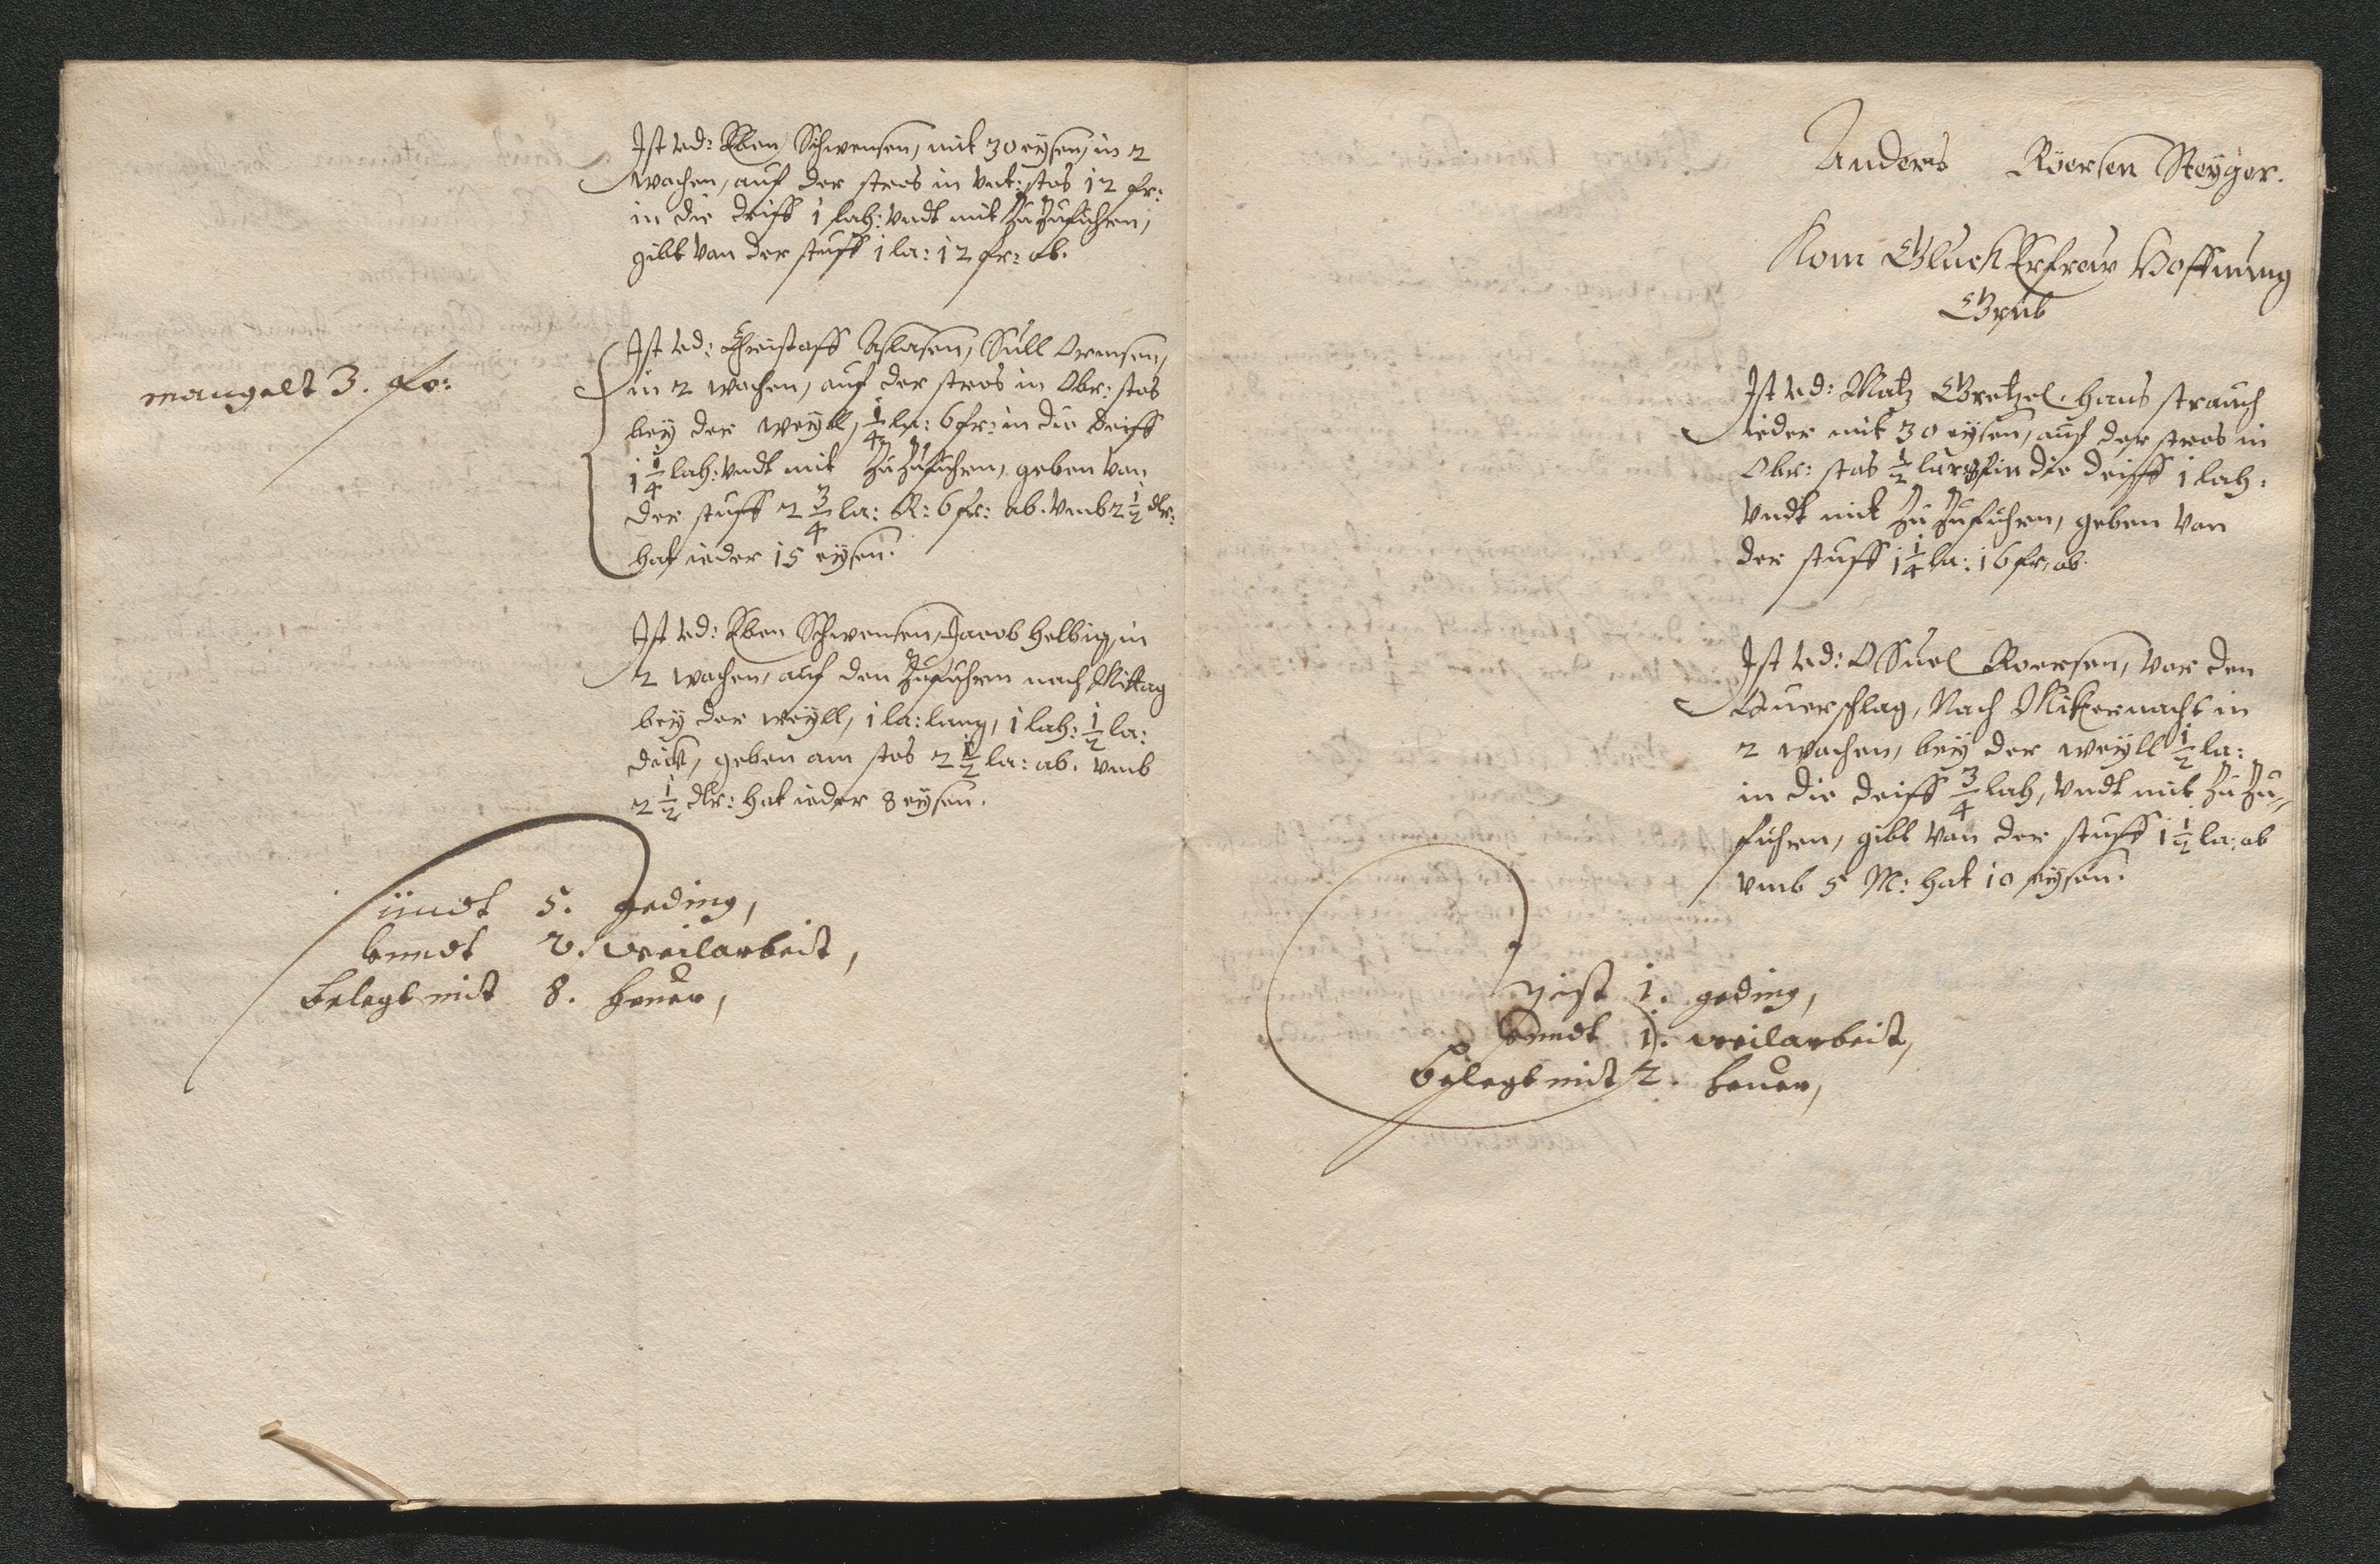 Ist ved: Eben Schwensen, mit 30 eÿsen, in 2
wochen, auf der stros in Vnt: stos 12 fr:
in die deiff 1 lah: vndt mit Zu Zufuhren,
gibt Von der stuff 1 la: 12 fr: ab.
mangelt 3. fr:
Ist ved: Christoff Aslasen, Sull Ormsen,
in 2 wochen, auf der stros in Obr: stos
beÿ der weÿll, 1/4 la: 6 fr: in die Deiff
1 1/4 lah: vndt mit Zu Zufuhren, geben von
der stuff 2 3/4 la: R: 6 fr: ab. vmb 2 1/2 dlr:
hat ieder 15 eÿsen.
Ist ved: Eben Schwensen, Jacob Helbig, in
2 wochen, auf den Zufuhren nach Mittag
beÿ der weÿll, 1 la: lang, 1 lah: 1/2 la:
dick, geben am stos 2 1/2 la: ab. vmb
2 1/2 dlr: hat ieder 8 eÿsen.
sindt 5. geding,
vnndt 2. weilarbeit,
belegt mit 8. heuer,
Anders Röersen Steÿger.
Kom Gluck Erfrew Hoffnung
Grub
Ist ved: Matz Gretzel. Hans strauch
ieder mit 30 eÿsen, auf der stros in
Obr: stos 1/2 in die deiff 1 lah:
Vndt mit Zu Zufuhren, geben Von
der stuff 1 1/4 la: 16 fr: ab.
Ist ved: OSuel Roersen, vor den
Querschlag, Nach Mitternacht in
2 wochen, beÿ der weÿll 1/2 la:
in die deiff 3/4 lah, vndt mit Zu Zu„
fuhren, gibt Von der stuff 1 1/2 la: ab
vmb 5 M: hat 10 eÿsen.
ist 1. geding,
vnndt 1. weilarbeit,
belegt mit 2. heuer,